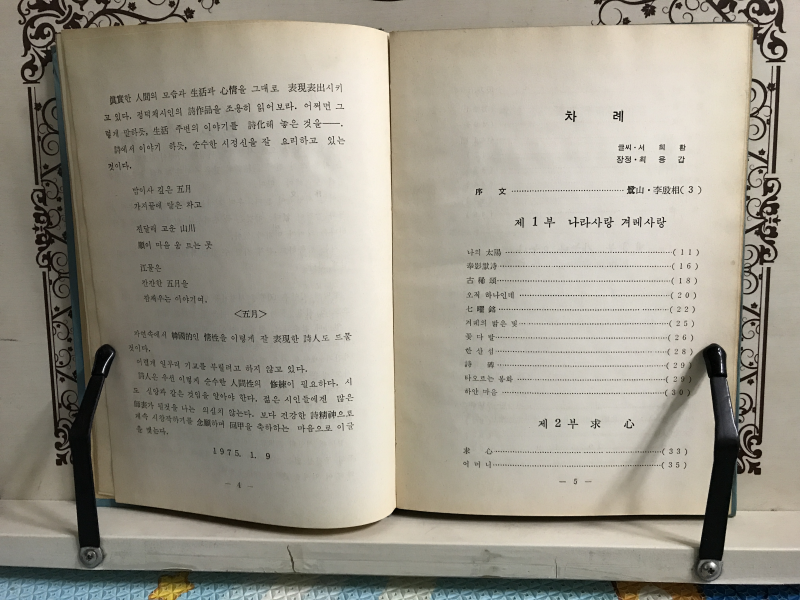 眞實한 人間의 모습과 生活과 心情을 그대로 表現表出시키
고 있다. 정덕채시인의 詩作品을 조용히 읽어보라. 어쩌면 그
렇게 알하듯, 生活 주변의 이야기를 詩化해 놓은 것을――.
詩에서 이야기 하듯, 순수한 시정신을 잘 요리하고 있는
것이다.
깊은 五月
가지끝에 달은 차고
진달래 고운 山川
마음 곳
江물은
잔잔한 五月을
이야기여.
<五月>
자연속에서 韓國的인 情性을 이렇게 잘 表現한 詩人도 드물
것이다.
이렇게 일부러 기교를 부릴려고 하지 않고 있다.
詩人은 우선 이렇게 순수한 人間性의 修練이 필요하다. 시
도 신앙과 같은 것임을 알아야 한다. 젊은 시인들에겐 많은
됨을 나는 의심치 않는다. 보다 건강한 詩精神으로
계속 시창작하기를 念願하며 回甲을 축하하는 마음으로 이글
을 맺는다.
1975. 1. 9
― 4 ―
차 례
글씨·서 희 환
장정·최 용 갑
序 文 ……………………………… 鷺山·李殷相(3)
제 1 부 나라사랑 겨레사랑
나의 太陽 ……………………………………(11)
奉影獻詩 ……………………………………(16)
古稀頌 ……………………………………(18)
오직 하나인데 ……………………………………(20)
七曜銘 ……………………………………(22)
겨레의 밝은 빛 ……………………………………(25)
꽃 다 발 ……………………………………(26)
밥 상 설 ……………………………………(28)
詩 ……………………………………(29)
타오르는 봉화 ……………………………………(29)
하얀 마음 ……………………………………(30)
제 2 부 求 心
求 心 ……………………………………(33)
어 머 니 ……………………………………(35)
― 5 ―